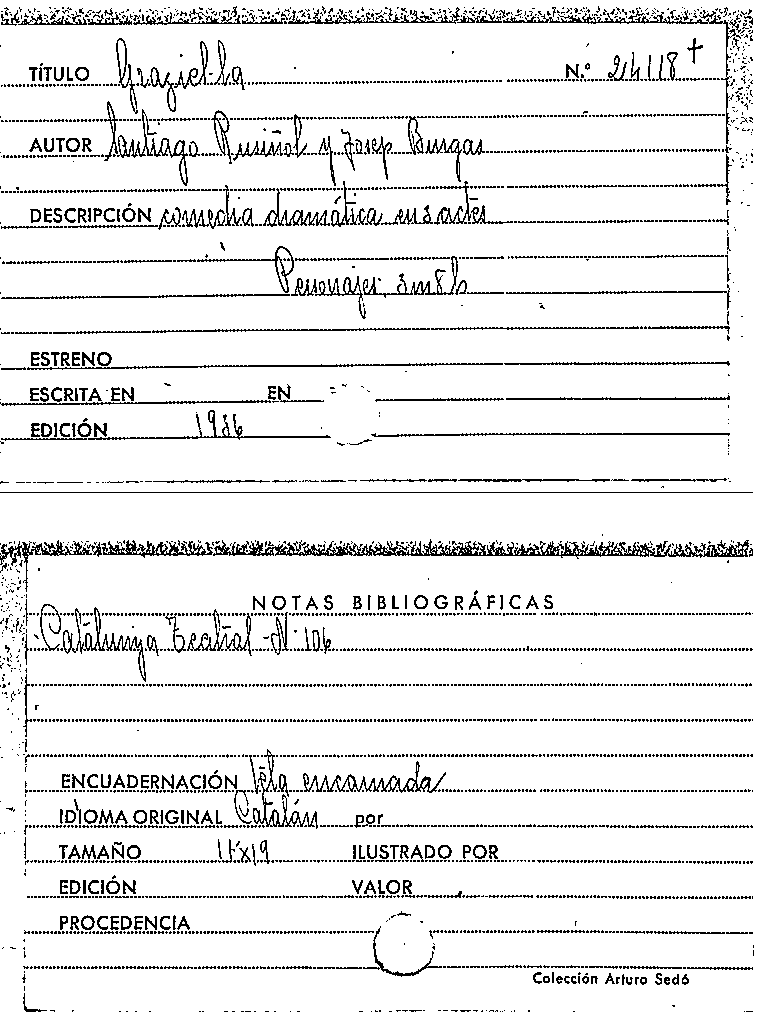 TÍTULO Graziel·la N.º 24118 +
AUTOR Santiago Rusiñol y Josep Burgas
DESCRIPCIÓN comedia dramática en 3 actes
Personajes: 3m 8h
ESTRENO
ESCRITA EN EN
EDICIÓN 1936
NOTAS BIBLIOGRÁFICAS
Catalunya Teatral - Nº 106
ENCUADERNACIÓN tela encarnada
IDIOMA ORIGINAL Catalán por
TAMAÑO ILUSTRADO POR
EDICIÓN VALOR
PROCEDENCIA
Colección Arturo Sedó